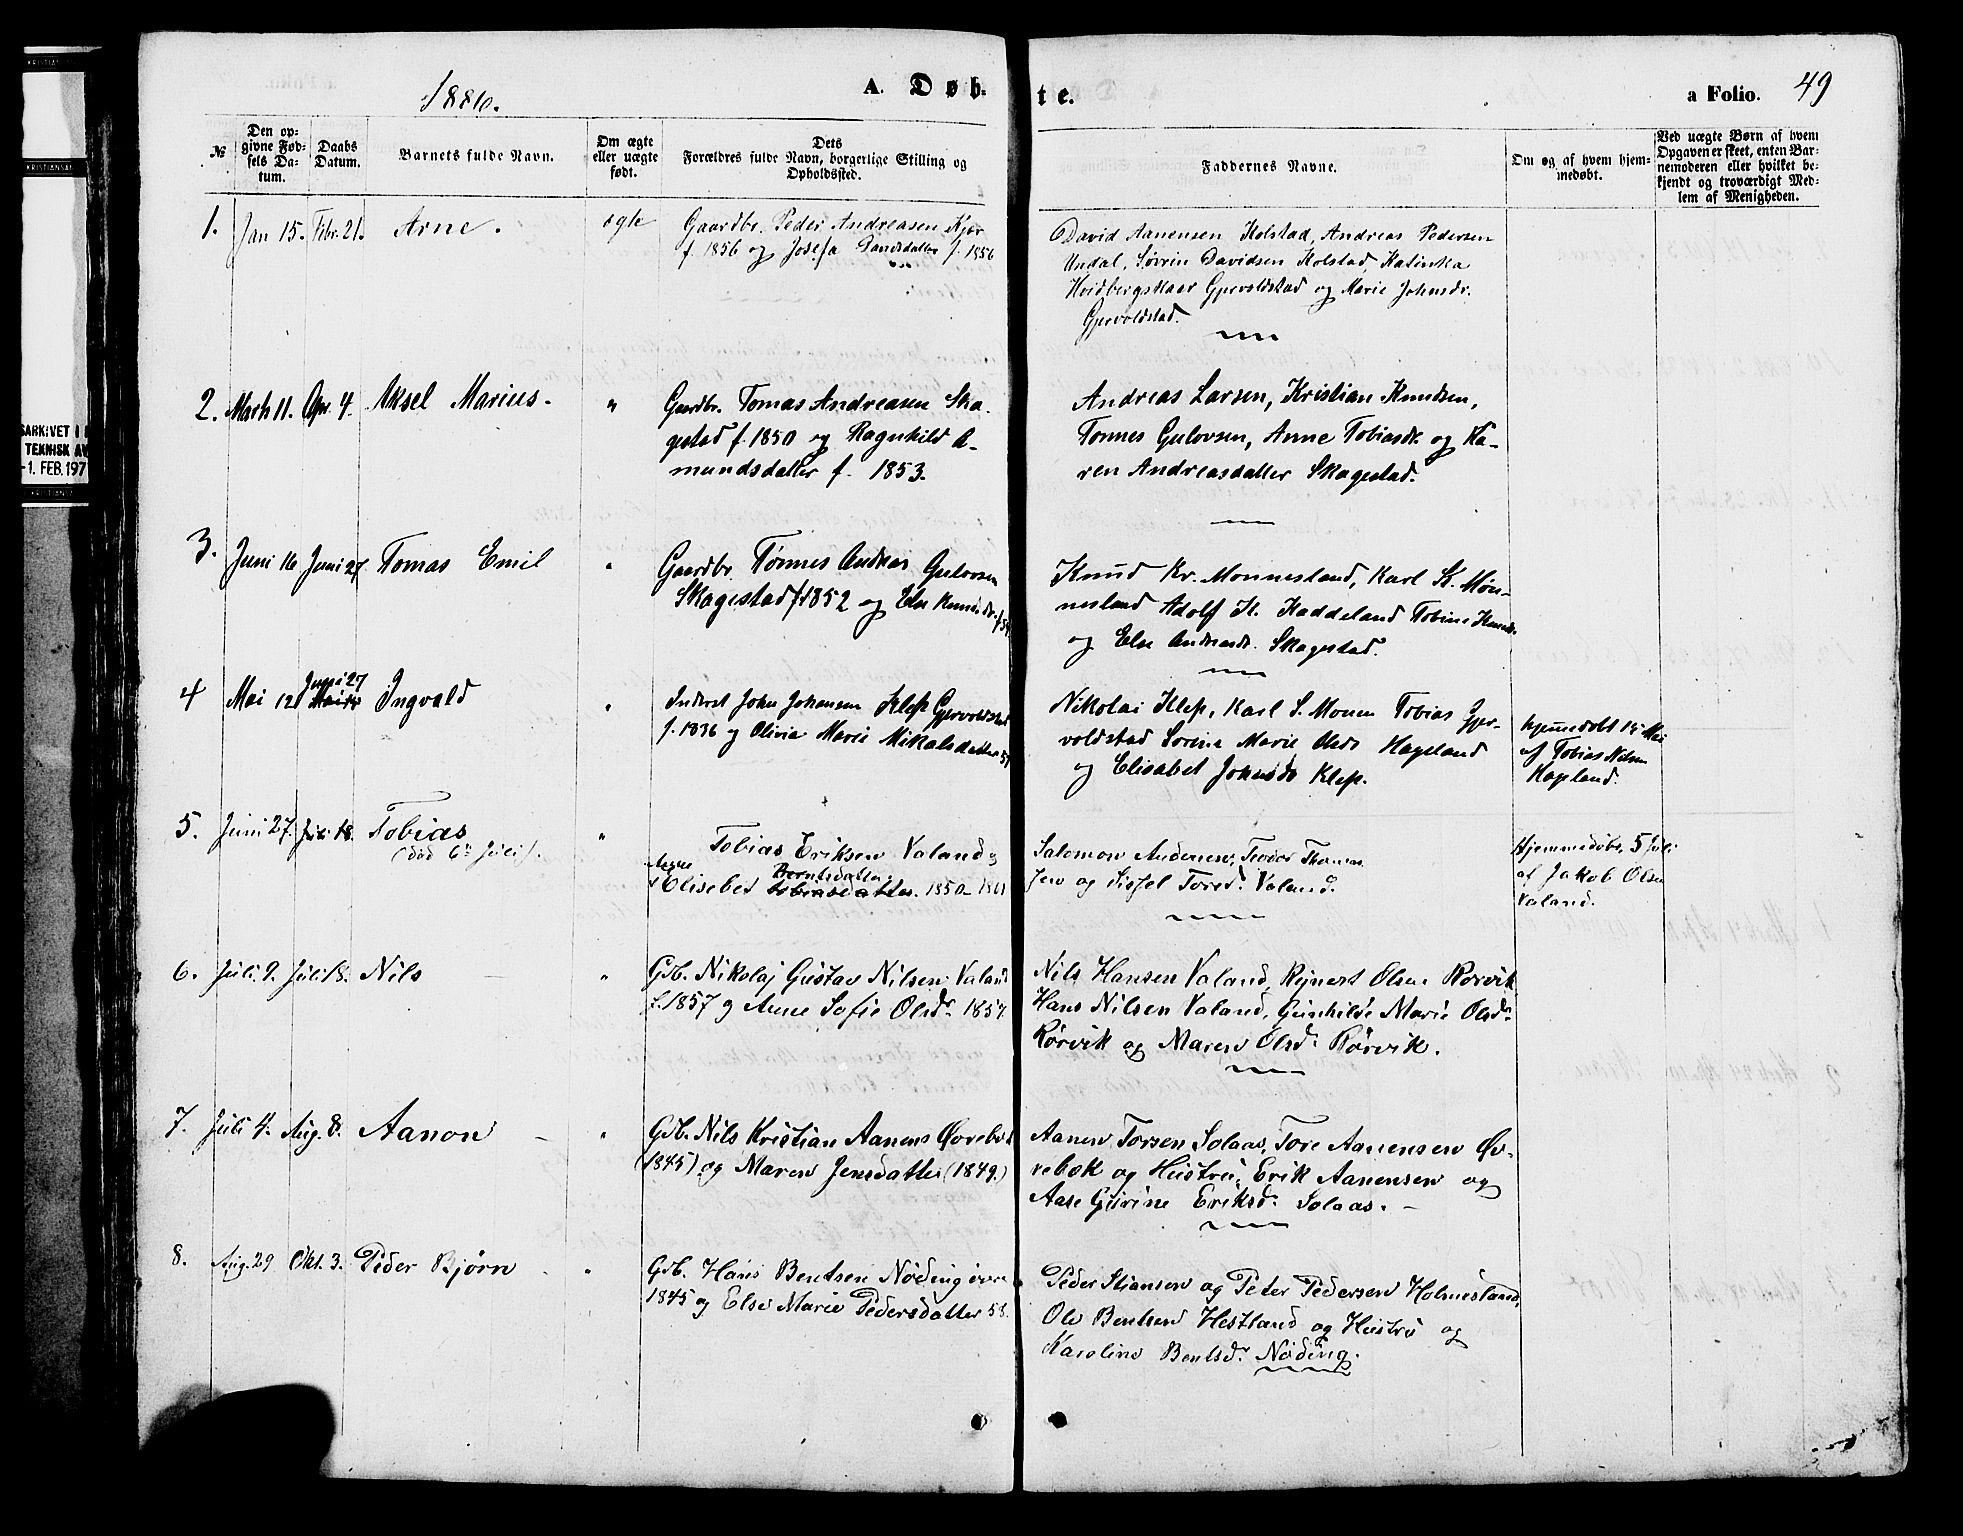 1886.
A. Døbte.
a Folio. 49
№
Den opgivne Fødsels Datum.
Daabs Datum.
Barnets fulde Navn.
Om ægte eller uægte født.
Dets Forældres fulde Navn, borgerlige Stilling og Opholdssted.
Faddernes Navne.
Om og af hvem hjemmedøbt.
Ved uægte Børn af hvem Opgaven er skeet, enten Barnemoderen eller hvilket bekjendt og troværdigt Medlem af Menigheden.
1. Jan 15. Febr. 21. Arne. ægte
Gaardbr. Peder Andreasen Kjær
f. 1856 og Josefa f. 1856
David Aanensen Holstad, Andreas Pedersen
Undal, Søvrin Davidsen Holstad, Katinka
Gjervoldstad og Marie Johnsdr.
Gjervoldstad.
2. Marts 11. Apr. 4. Aksel Marius. "
Gaardbr. Tomas Andreasen Ska-
gestad f. 1850 og Ragnhild A-
mundsdatter f. 1853.
Andreas Larsen, Kristian Knudsen,
Tønnes Gulovsen, Anne Tobiasdr. og Ka-
ren Andreasdatter Skagestad.
3. Juni 16 Juni 27. Tomas Emil "
Gaardbr. Tønnes Andreas Gulovsen
Skagestad f. 1852 og Else Knudsdr.
Knud Kr. Monnesland, Karl K. Møn-
nesland Adolf K. Haddeland Tobine Knudsdr.
og Else Andreasdr. Skagestad.
4 Mai 12 Juni 27 Ingvald "
Inderst John Johansen Klep Gjervoldstad
f. 1836 og Olivia Marie Mikalsdatter
Nikolai Klep, Karl S. Monen Tobias Gjer-
voldstad Sorine Marie Olsdr Hageland
og Elisabet Johnsdr Klep.
hjemmedøbt 15 Mai
af Tobias Nilsen
Hageland.
5. Juni 27. Juli 18. Tobias "
(død 6te Juli).
Tobias Eriksen Valand og
Elisebet Berntsdatter 1850 - 1861
Salomon Andersen, Teodor Thomas
sen og Sissel Toresd. Valand.
Hjemmedøbt 5 Juli
af Jakob Olsen
Valand.
6. Juli 9. Juli 18. Nils "
Gdb. Nikolaj Gustav Nilsen Valand
f. 1857 og Anne Sofie Olsdr 1857.
Nils Hansen Valand, Rejnert Olsen Rørvik
Hans Nilsen Valand, Gunhilde Marie Olsdr
Rørvik og Maren Olsd. Rørvik.
7. Juli 4. Aug. 8. Aanon - "
Gdb. Nils Kristian Aanens Øvrebø
(1845) og Maren Jensdatter (1849.)
Aanen Torsen Solaas, Tore Aanensen Øv-
rebøk og Hustru, Erik Aanensen og
Aase Gurine Eriksd. Solaas. -
8. Aug. 29 Okt. 3. Peder Bjørn - "
Gdb. Hans Bentsen Nøding øvre
1845 og Else Marie Pedersdatter 58.
Peder Stiansen og Peter Pedersen Holmesland,
Ole Bentsen Hestland og Hustru og
Karoline Bentsdr Nøding.
KRISTIANSA
KRISTIANSA
SARKIVET I
TEKNISK AV
-1. FEB. 197
KRISTIANSA